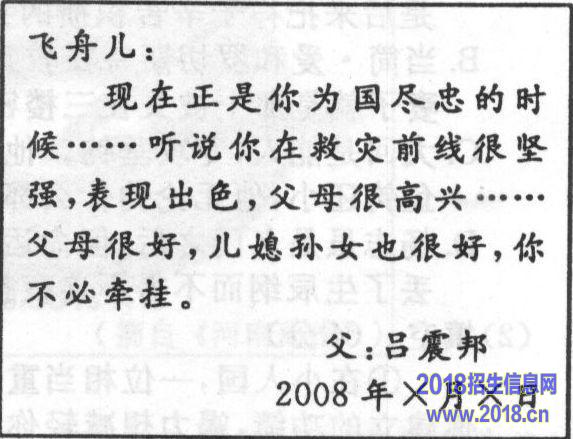 飞舟儿：
现在正是你为国尽忠的时
候……听说你在救灾前线很坚
强，表现出色，父母很高兴……
父母很好，儿媳孙女也很好，你
不必牵挂。
父：吕震邦
2008年×月×日
2018招生信息网
www.2018.cn